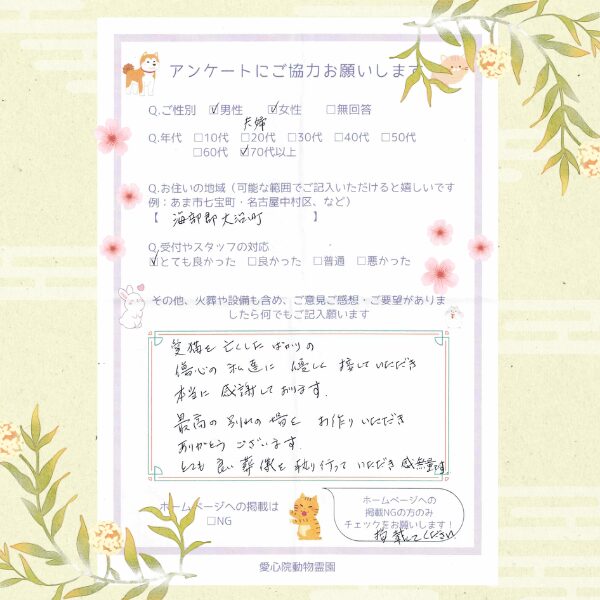 アンケートにご協力お願いします
Q.ご性別 ☑男性 ☑女性 □無回答
夫婦
Q.年代 □10代 □20代 □30代 □40代 □50代
□60代 ☑70代以上
Q.お住いの地域（可能な範囲でご記入いただけると嬉しいです
例：あま市七宝町・名古屋中村区、など）
【 海部郡大治町 】
Q.受付やスタッフの対応
☑とても良かった □良かった □普通 □悪かった
その他、火葬や設備も含め、ご意見ご感想・ご要望がありま
したら何でもご記入願います
愛猫を亡くしたばかりの
傷心の私達に優しく接していただき
本当に感謝しております.
最高の別れの場を お作りいただき
ありがとうございます.
とても良い葬儀を執り行っていただき感無量です
ホームページへの掲載は
□NG
ホームページへの
掲載NGの方のみ
チェックをお願いします！
掲載してください
愛心院動物霊園